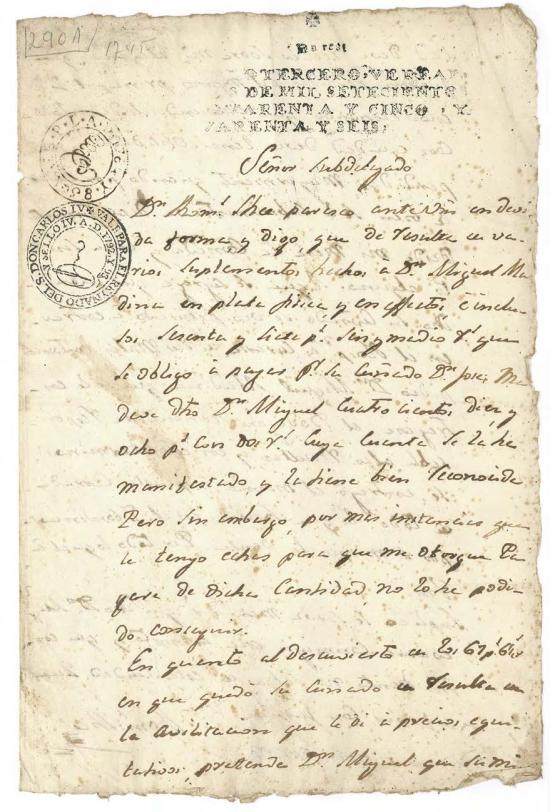 2901
174
Un real
O TERCERO, VN REAL
S DE MIL SETECIENTOS
QVARENTA Y CINCO, Y
VARENTA Y SEIS,
DEL S. DON CARLOS IV VALE PARA EL REYNADO
Y SELLO IV. A. D. 1792 Y 93
Señor subdelegado
Dn Thoms. Shee paresco ante Vm en devi
da forma y digo, que de resulta de va
rios suplementos hechos a Dn Miguel Ma
dera en plata fisica, y en effectos e inclu
sos sesenta y siete ps. seis y medio rs. que
se obligó à pagar pr. su cuñado Dn Jose Ma
deve dho Dn Miguel cuatro cientos diez y
ocho ps. con dos rs. cuya cuenta se la he
manifestado y la tiene bien reconocida
Pero sin embargo, por mas instancias que
le tengo echas para que me otorgue Pa
gare de dicha cantidad, no lo he podi
do conseguir.
En quanto al descuvierto de los 67 ps. 6½ rs
en que quedó su cuñado de resulta de
la avilitacion que le di à precios equi
tativos, pretende Dn Miguel que